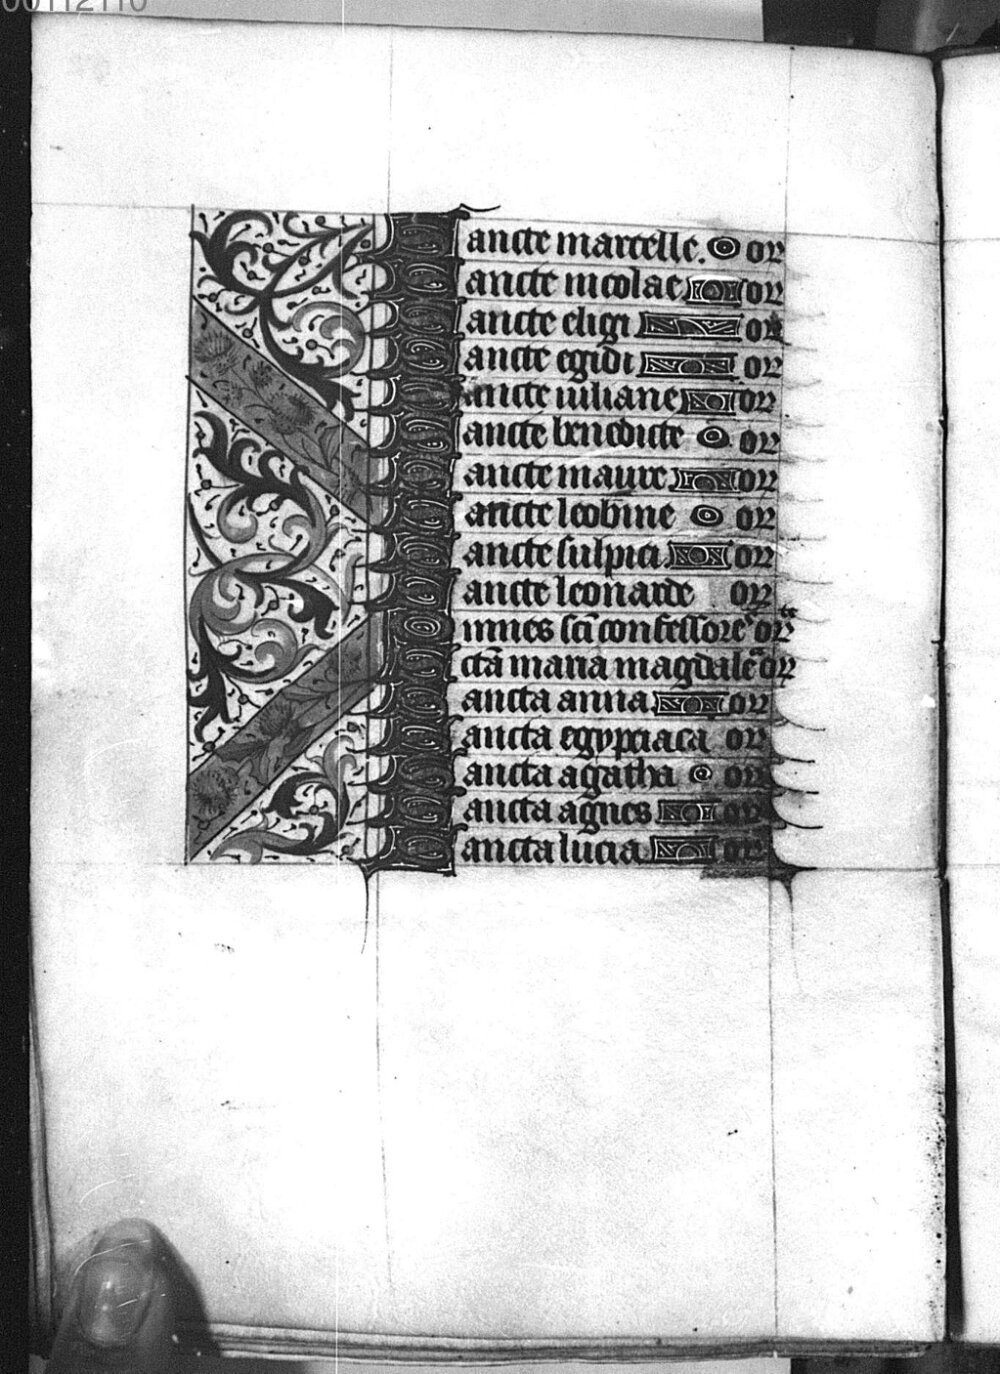 00112110
Sancte martelle. or
Sancte nicolae or
Sancte eligi or
Sancte egidi or
Sancte iuliane or
Sancte benedicte or
Sancte maure or
Sancte leobine or
Sancte sulpici or
Sancte leonarde or
Omnes scī confessore or
Sctā maria magdale or
Sancta anna or
Sancta egyptiaca or
Sancta agatha or
Sancta agnes or
Sancta lucia or